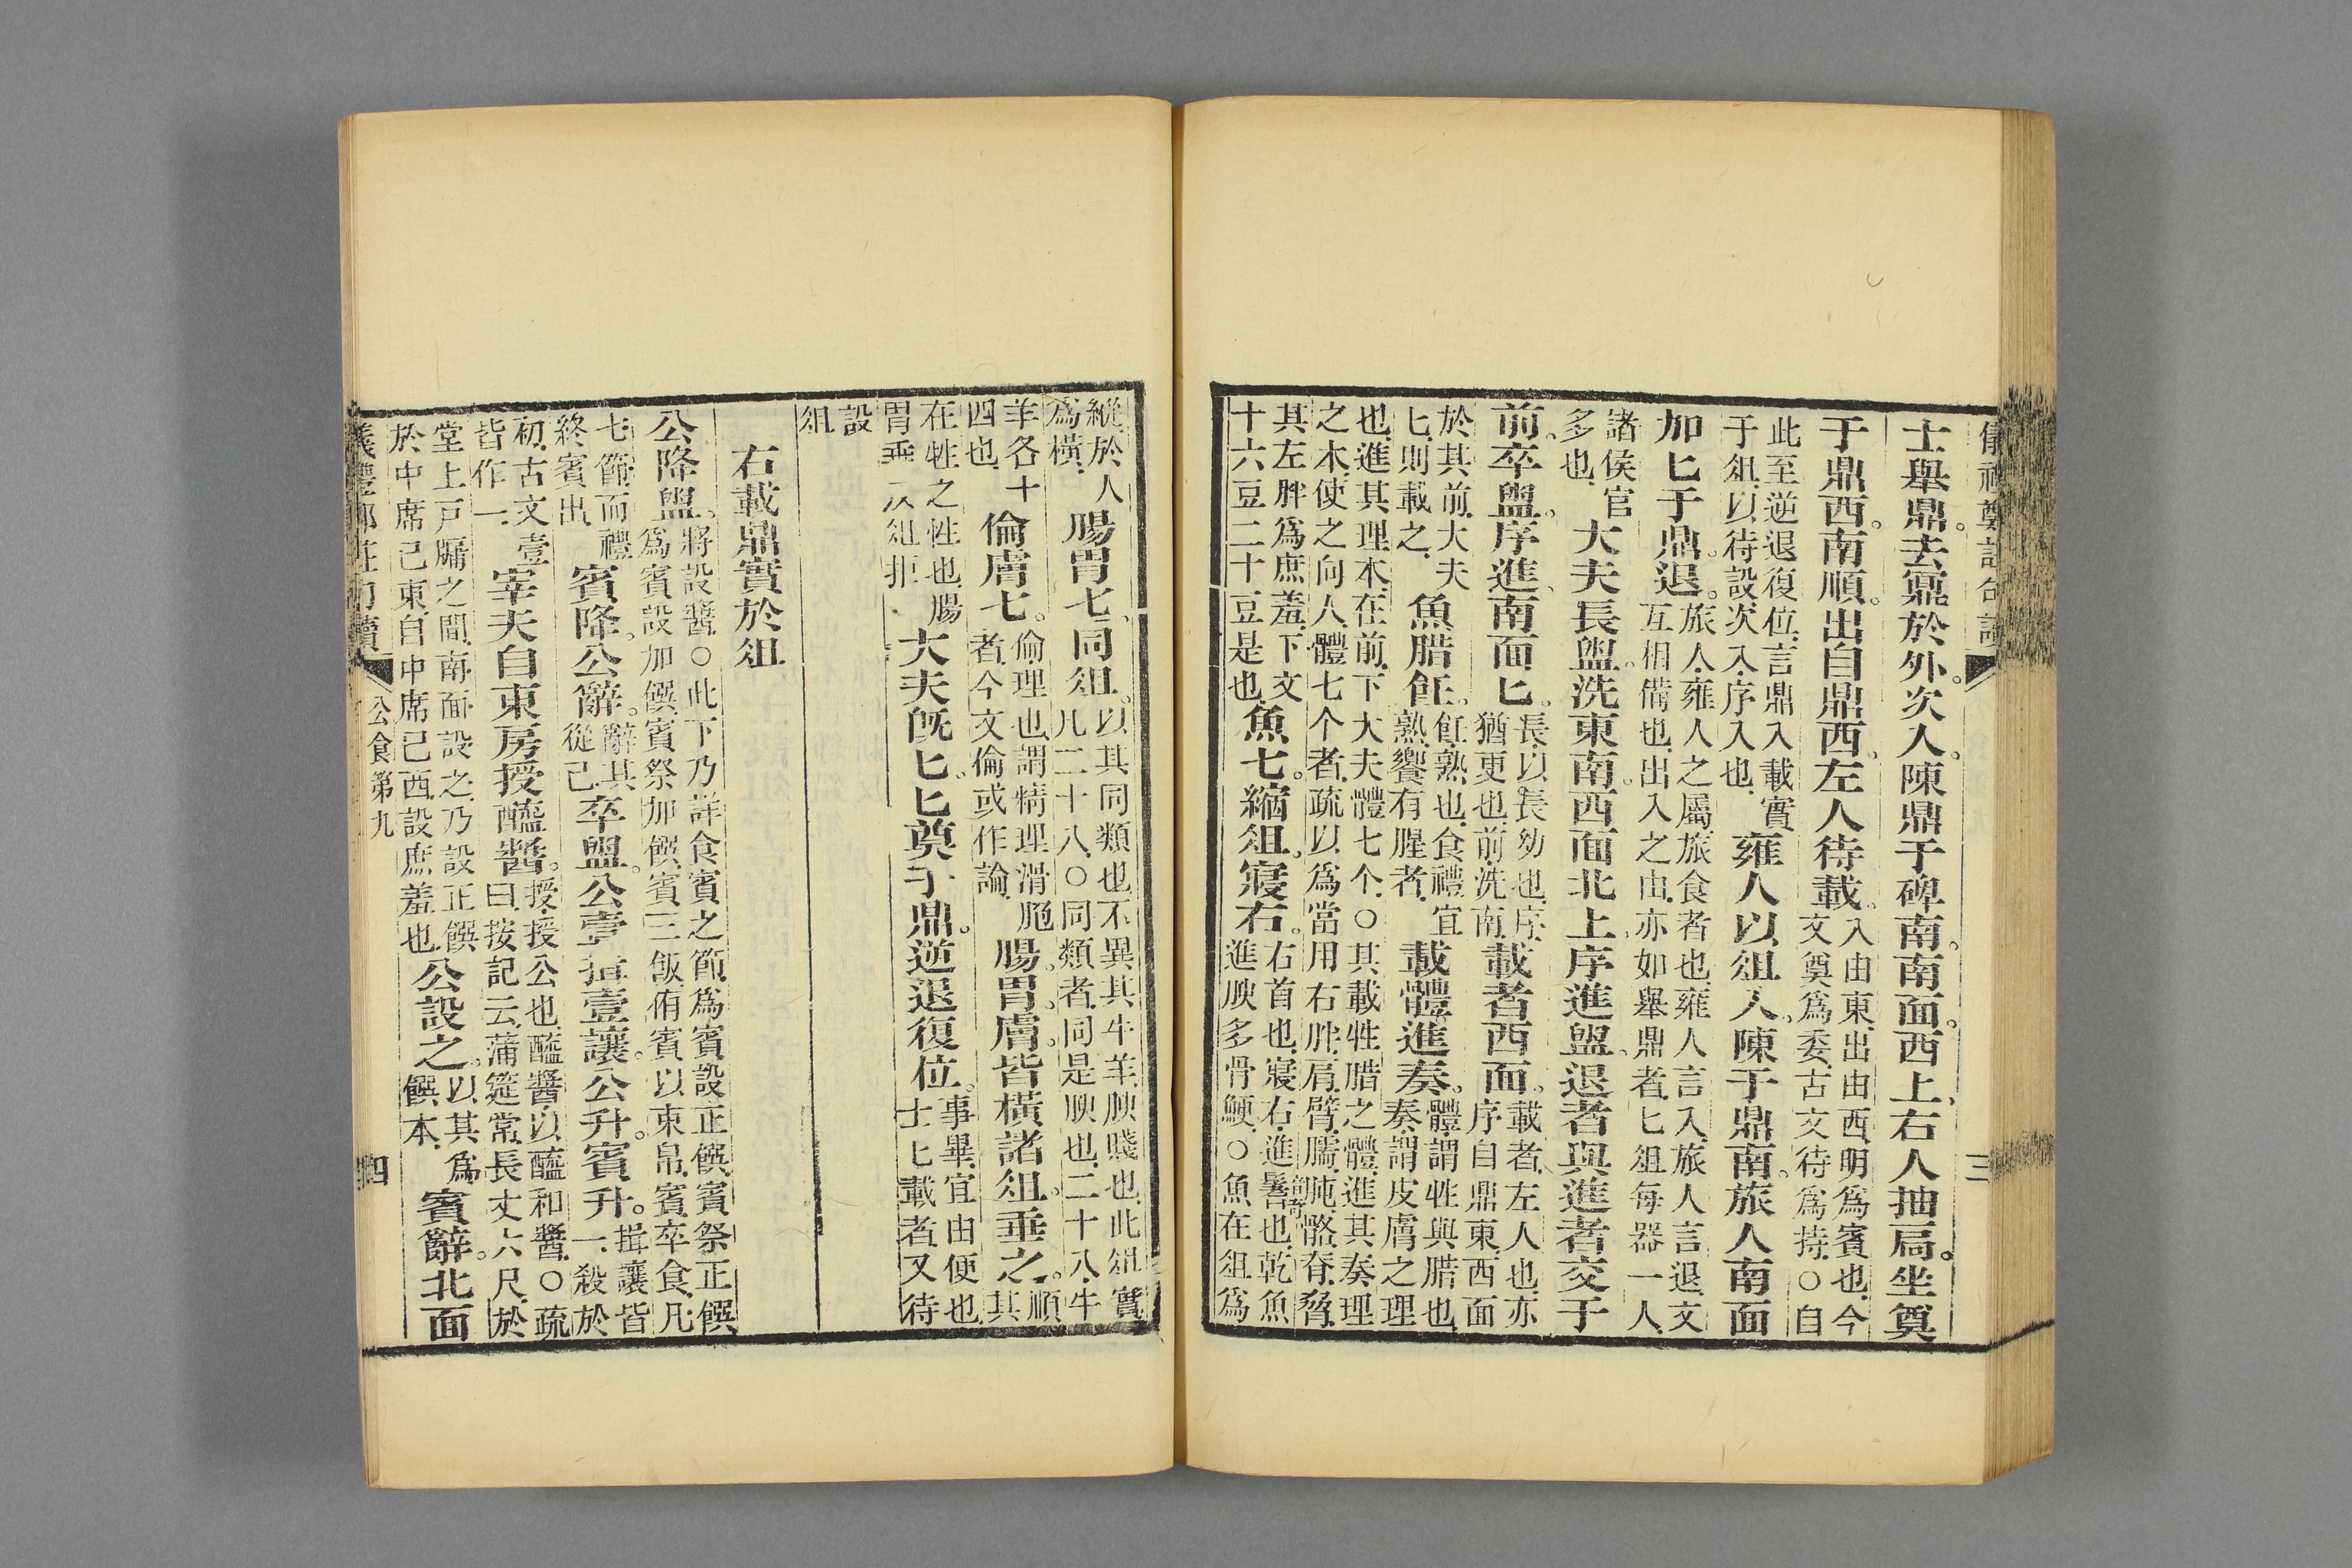 儀禮鄭註句讀 三
士舉鼎。去鼏於外。次入。陳鼎于碑南。南面。西上。右人抽扃。坐奠
于鼎西。南順。出自鼎西。左人待載。入由東。出由西。明爲賓也。今文奠爲委。古文待爲持。○自
此至逆退復位。言鼎入載實于俎。以待設。次入。序入也。雍人以俎入。陳于鼎南。旅人南面
加匕于鼎。退。旅人。雍人之屬。旅食者也。雍人言入。旅人言退。文互相備也。出入之由。亦如舉鼎者。匕俎每器一人。
諸侯官多也。大夫長盥。洗東南。西面北上。序進盥。退者與進者交于
前。卒盥。序進。南面匕。長。以長幼也。序。猶更也。前。洗南。載者西面。載者。左人也。亦序自鼎東。西面
於其前。大夫匕。則載之。魚腊飪。飪。熟也。食禮宜熟。饗有腥者。載體進奏。體。謂牲與腊也。奏。謂皮膚之理
也。進其理。本在前。下大夫體七个。○其載牲腊之體。進其奏理之本。使之向人。體七个者。疏以爲當用右胖。肩臂臑肫胳脊脅。
其左胖爲庶羞。下文十六豆二十豆是也。魚七。縮俎。寢右。右首也。寢右。進鬐也。乾魚進腴多骨鯁。○魚在俎爲
縱。於人爲橫。腸胃七。同俎。以其同類也。不異其牛羊。腴賤也。此俎實凡二十八。○同類者。同是腴也。二十八。牛
羊各十四也。倫膚七。倫。理也。謂精理滑脃者。今文倫或作論。腸胃。膚。皆橫諸俎。垂之。順其
在牲之性也。腸胃垂及俎拒。大夫旣匕。匕奠于鼎。逆退復位。事畢。宜由便也。士匕載者。又待
設俎
右載鼎實於俎
公降盥。將設醬。○此下乃詳食賓之節。爲賓設正饌。賓祭正饌。爲賓設加饌。賓祭加饌。賓三飯。侑賓以束帛。賓卒食。凡
七節而禮終賓出。賓降。公辭。辭其從己。卒盥。公壹揖壹讓。公升。賓升。揖讓皆一。殺於
初。古文壹皆作一。宰夫自東房授醯醬。授。授公也。醯醬。以醯和醬。○疏曰。按記云。蒲筵常。長丈六尺。於
堂上戶牖之間。南面設之。乃設正饌於中席已東。自中席已西。設庶羞也。公設之。以其爲饌本。賓辭。北面
儀禮鄭註句讀 公食第九 四